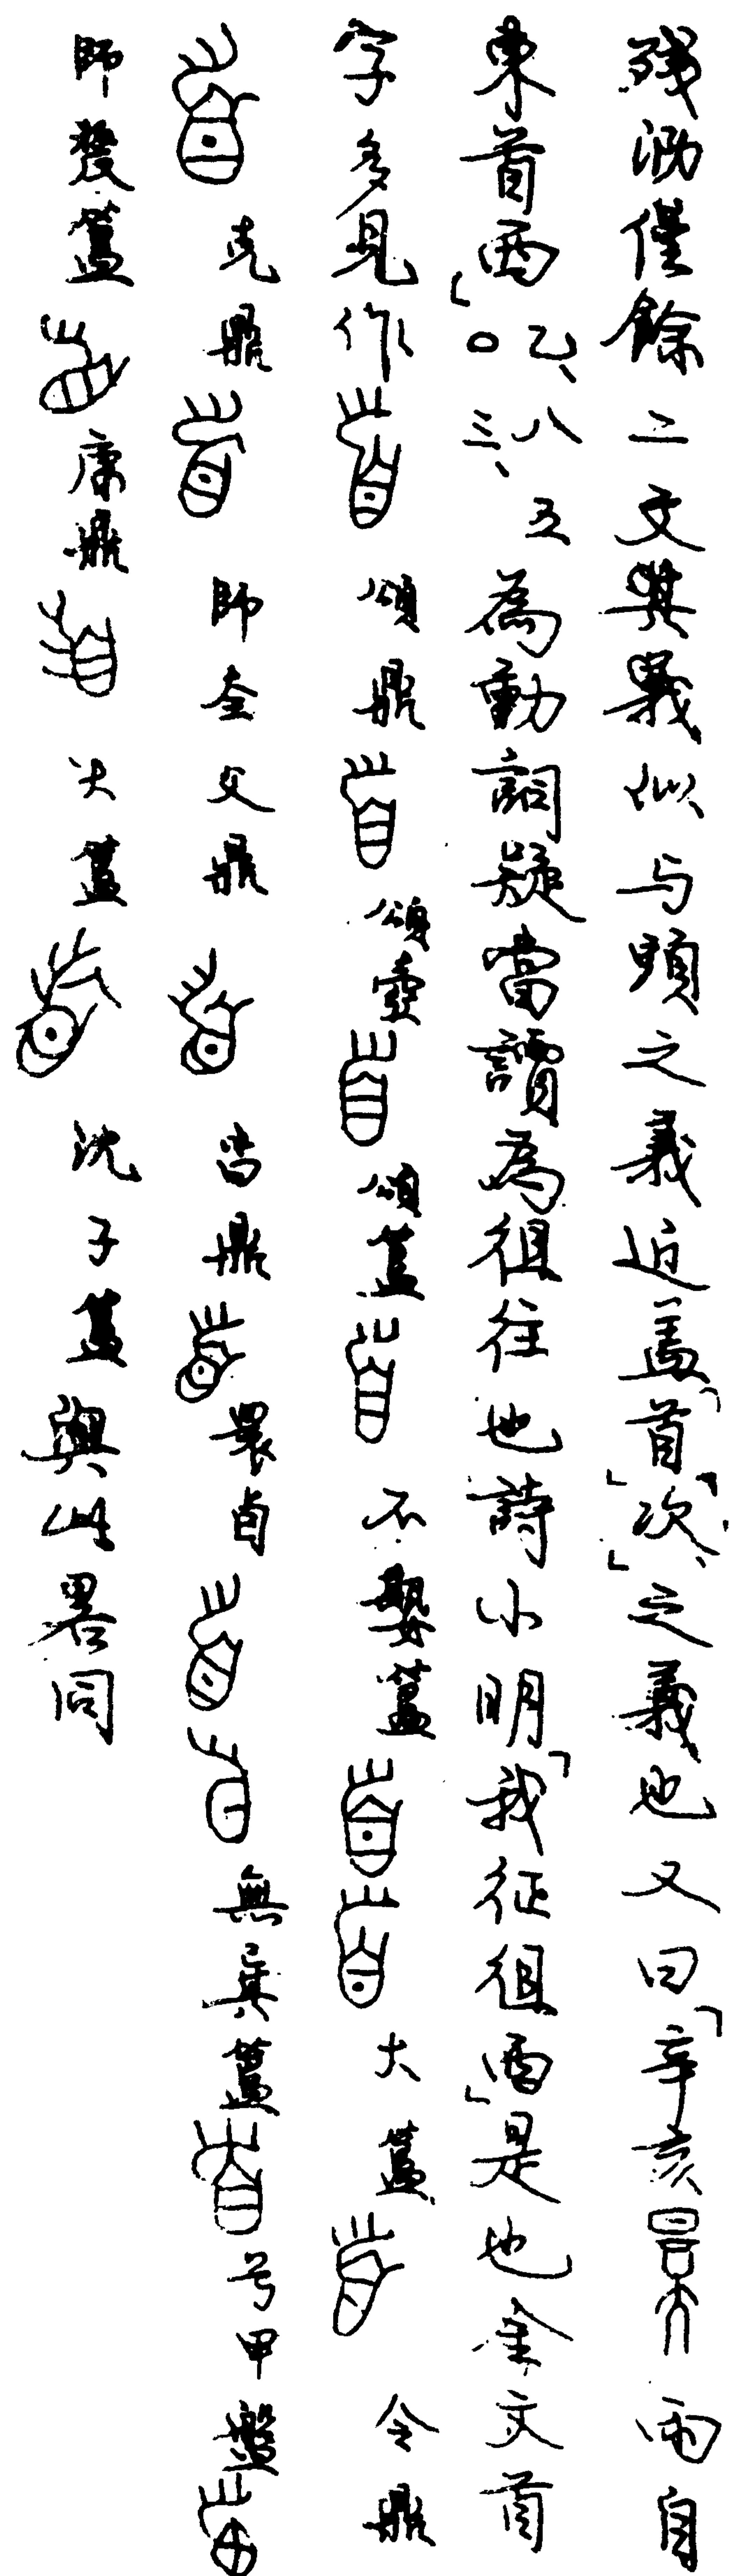 殘泐僅餘二文其義似与頭之義近蓋「首」「次」之義也又曰「辛亥雨自
東首西」乙、八五〇三、為動詞疑當讀為徂往也詩小明「我征徂西」是也金文首
字多見作頌鼎頌壺頌簋不𡢁簋大簋令鼎
克鼎師至父鼎㫚鼎睘卣無㠱簋兮甲盤
師㝨簋康鼎大簋沈子簋與此畧同